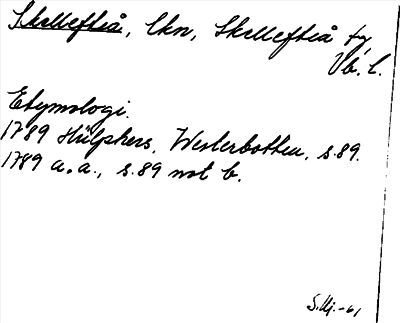 Skellefteå, lkn, Skellefteå ty,
Vb. l.
Etymologi.
1789 Hülphers, Westerbotten, s.89.
1789 a.a., s.89 not b.
S.Uj.-61